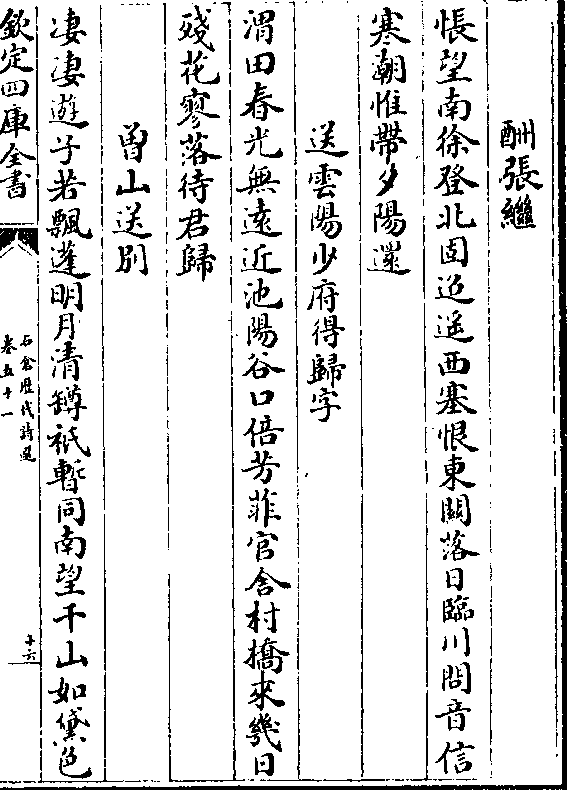 酬張繼
悵望南徐登北固迢遥西塞恨東關落日臨川問音信
寒潮惟帶夕陽還
送雲陽少府得歸字
渭田春光無遠近池陽谷口倍芳菲官舍村橋來幾日
殘花寥落待君歸
曽山送別
凄凄遊子若飄蓬明月清罇祇暫同南望千山如黛色
欽定四庫全書
石倉歷代詩選
卷五十一
十六